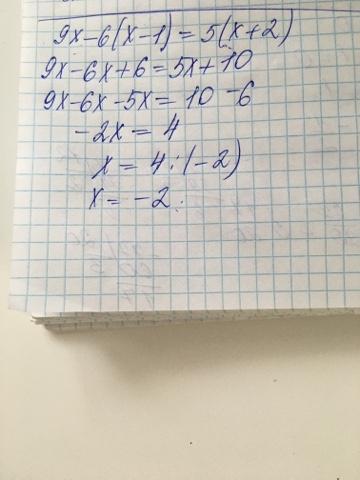 9x-6(x-1)=5(x+2)
9x-6x+6=5x+10
9x-6x-5x=10-6
-2x=4
x=4:(-2)
x=-2.